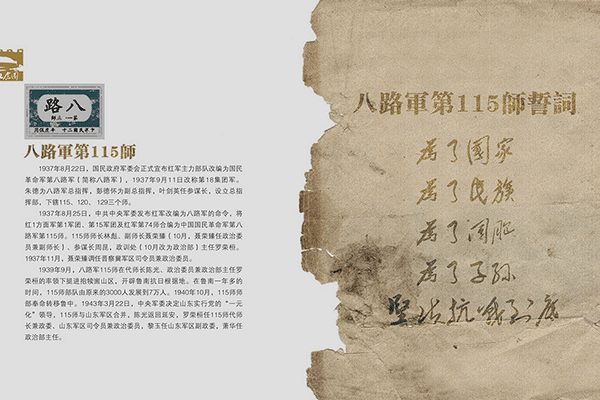 八路
八路軍第115師
1937年8月22日,国民政府军委会正式宣布红军主力部队改编为国民革
命军第八路军(简称八路军),1937年9月11日改称第18集团军。
朱德为八路军总指挥,彭德怀为副总指挥,叶剑英任参谋长,设立总指
挥部,下辖115、120、129三个师。
1937年8月25日,中共中央军委发布红军改编为八路军的命令,将
红1方面军第1军团、第15军团及红军第74师合编为中国国民革命军第八
路军第115师。115师师长林彪、副师长聂荣臻(10月,聂荣臻任政治委
员兼副师长)、参谋长周昆,政训处(10月改为政治部)主任罗荣桓。
1937年11月,聂荣臻调任晋察冀军区司令员兼政治委员。
1939年9月,八路军115师在代师长陈光、政治委员兼政治部主任罗
荣桓的率领下挺进抱犊崮山区,开辟鲁南抗日根据地。在鲁南一年多的
时间,115师部队由原来的3000人发展到7万人。1940年10月,115师师
部奉命转移鲁中。1943年3月22日,中央军委决定山东实行党的“一元
化”领导,115师与山东军区合并,陈光返回延安,罗荣桓任115师代师
长兼政委、山东军区司令员兼政治委员,黎玉任山东军区副政委,萧华任
政治部主任。
八路軍第115師誓詞
为了国家
为了民族
为了同胞
为了子孙
坚决抗战到底